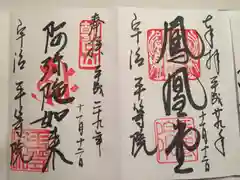 奉拝 平成二十九年
十一月十二日
鳳凰堂
宇治 平等院
奉拝 平成二十九年
十一月十二日
阿弥陀如来
宇治 平等院